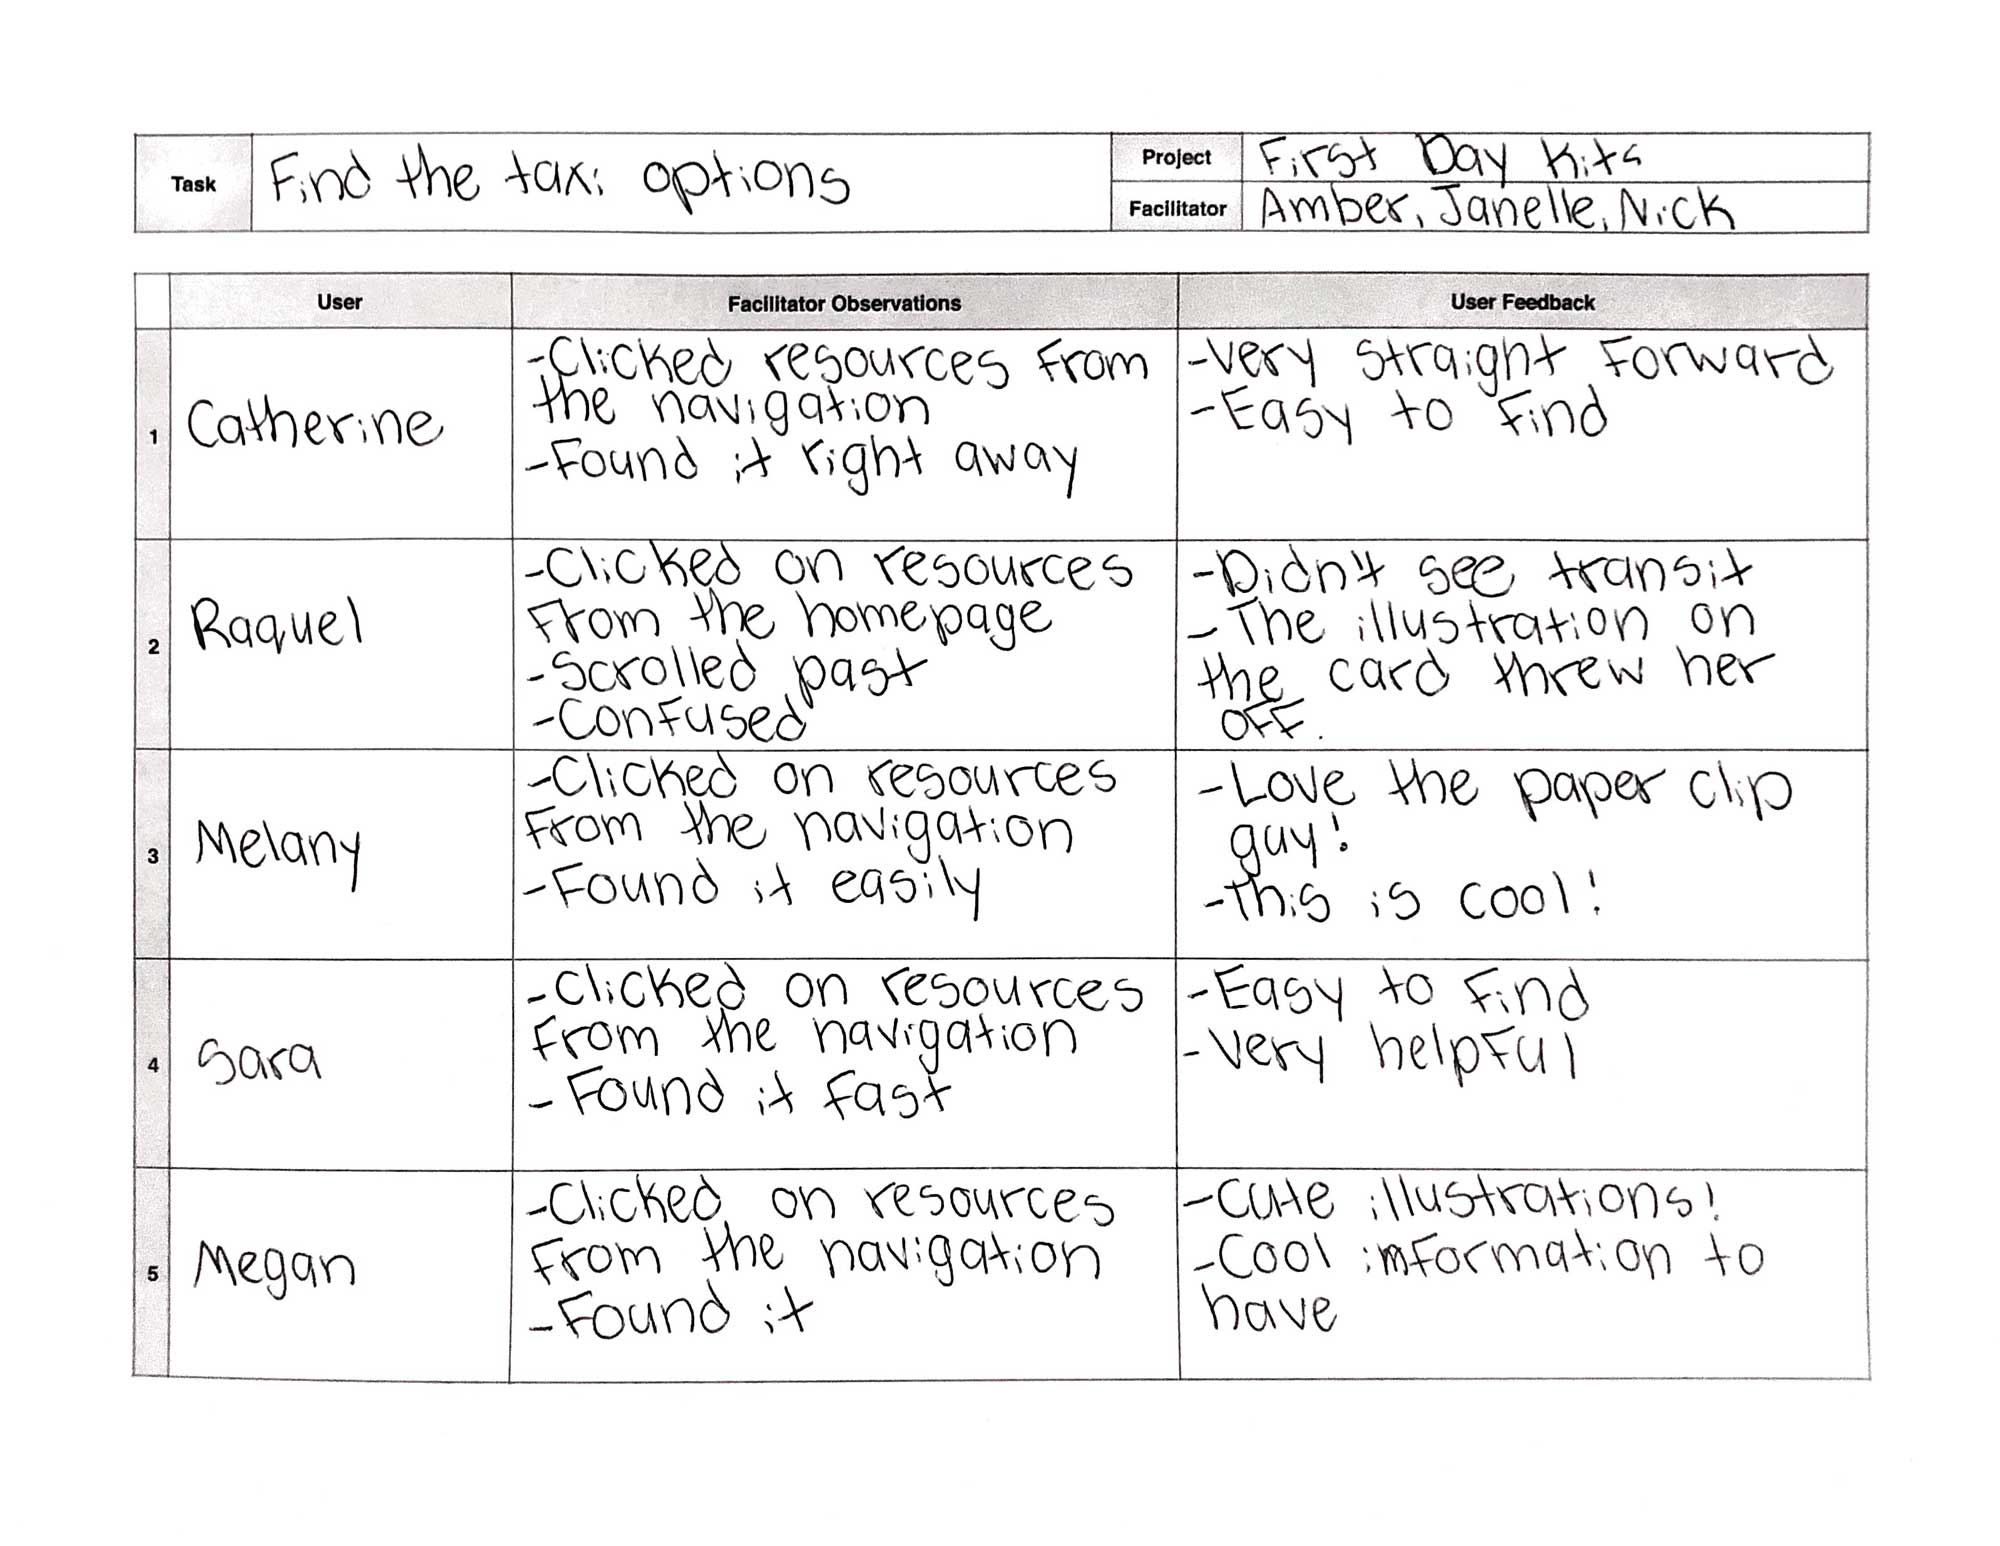 Task
Find the taxi options
Project
First Day Kits
Facilitator
Amber, Janelle, Nick
User
Facilitator Observations
User Feedback
1
Catherine
-Clicked resources from
the navigation
-Found it right away
-Very straight forward
-Easy to find
2
Raquel
-Clicked on resources
from the homepage
-Scrolled past
-Confused
-Didn't see transit
-The illustration on
the card threw her
off.
3
Melany
-Clicked on resources
from the navigation
-Found it easily
-Love the paper clip
guy!
-This is cool!
4
Sara
-Clicked on resources
from the navigation
-Found it fast
-Easy to find
-Very helpful
5
Megan
-Clicked on resources
from the navigation
-Found it
-Cute illustrations!
-Cool information to
have